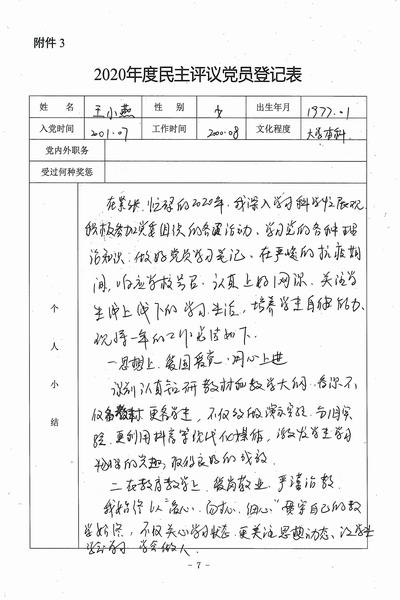 附件 3
2020年度民主评议党员登记表
姓 名 王小燕 性 别 女 出生年月 1977.01
入党时间 2001.07 工作时间 2000.08 文化程度 大学本科
党内外职务
受过何种奖惩
个人小结
在紧张、忙碌的2020年,我深入学习科学发展观
积极参加党委组织的各项活动、学习党的各种理
论知识、做好党员学习笔记、在严峻的抗疫期
间,响应学校号召、认真上好网课、关注学
生线上线下的学习生活,培养学生自律能力、
现将一年的工作总结如下.
一思想上、爱国爱党、同心上进
认真钻研教材和教学大纲、
仅备教材更备学生,不仅做演示实验、
验、更利用科高等现代化媒体,激发学生学习
物理的兴趣,取得良好的成效.
二在教育教学上、爱岗敬业、严谨治教
我始终以"
学始终,不仅关心学习状态、更关注思想动态、让学生
学会学习 学会做人.
- 7 -